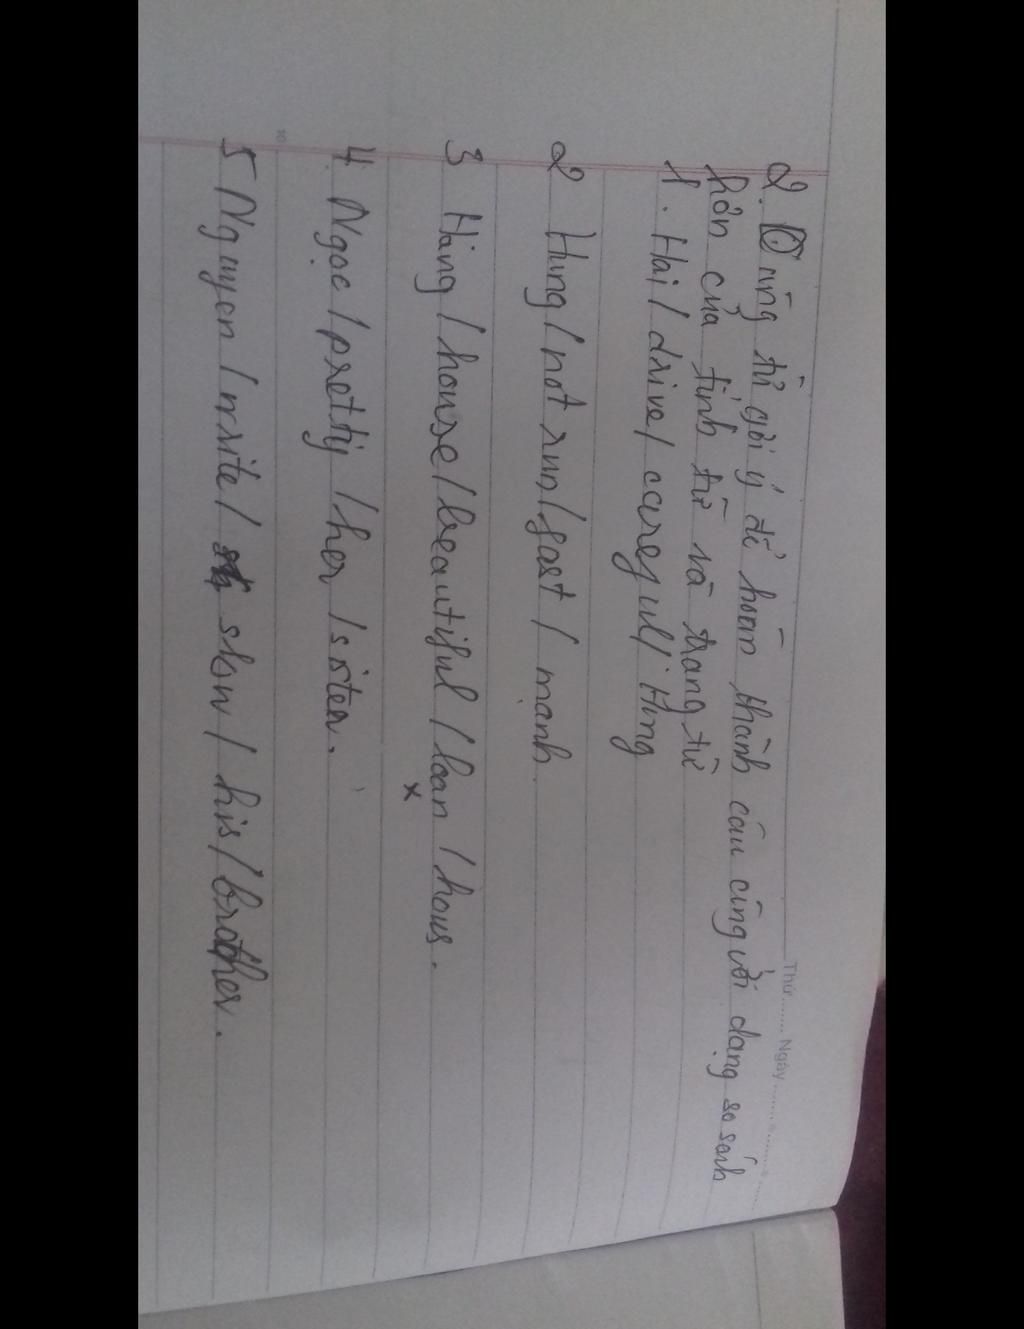 Thứ....... Ngày...............
2. Dùng từ gợi ý để hoàn thành câu cùng với dạng so sánh
hơn của tính từ và trạng từ
1. Hải / drive / careful / Hùng
2 Hùng / not run / fast / mạnh.
3 Hằng / house / beautiful / loan / hous.
x
4. Ngọc / pretty / her / sister.
5 Nguyen / write / slow / his / brother.
10